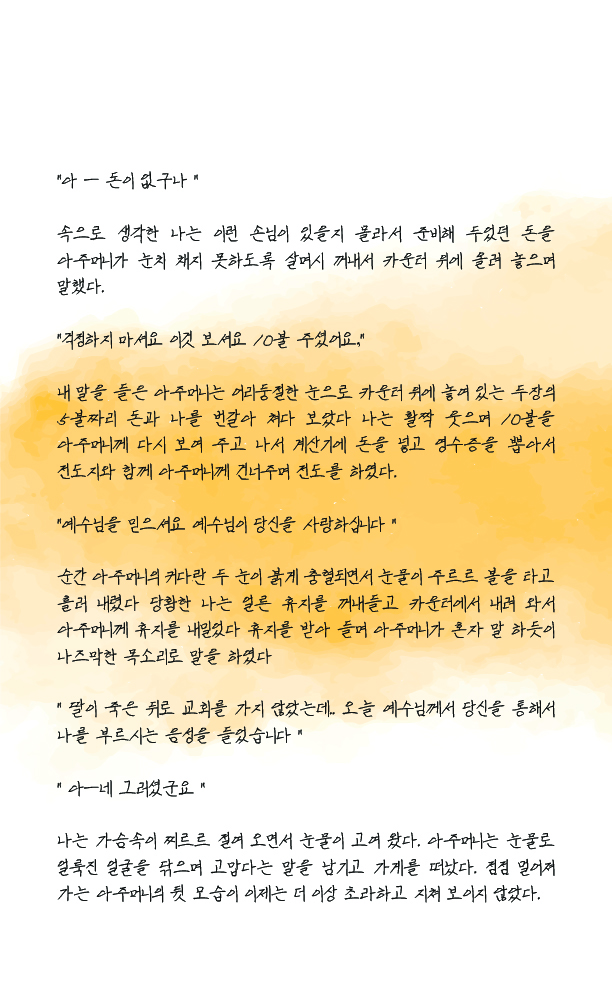 "아 — 돈이 없구나 "
속으로 생각한 나는 이런 손님이 있을지 몰라서 준비해 두었던 돈을
아주머니가 눈치 채지 못하도록 살며시 꺼내서 카운터 위에 올려 놓으며
말했다.
"걱정하지 마세요 이것 보세요 10불 주셨어요,"
내 말을 들은 아주머니는 어리둥절한 눈으로 카운터 위에 놓여 있는 두장의
5불짜리 돈과 나를 번갈아 쳐다 보았다 나는 활짝 웃으며 10불을
아주머니께 다시 보여 주고 나서 계산기에 돈을 넣고 영수증을 뽑아서
전도지와 함께 아주머니께 건너주며 전도를 하였다.
"예수님을 믿으세요 예수님이 당신을 사랑하십니다 "
순간 아주머니의 커다란 두 눈이 붉게 충혈되면서 눈물이 주르르 볼을 타고
흘러 내렸다 당황한 나는 얼른 휴지를 꺼내들고 카운터에서 내려 와서
아주머니께 휴지를 내밀었다 휴지를 받아 들며 아주머니가 혼자 말 하듯이
나즈막한 목소리로 말을 하였다
" 딸이 죽은 뒤로 교회를 가지 않았는데.. 오늘 예수님께서 당신을 통해서
나를 부르시는 음성을 들었습니다 "
" 아—네 그러셨군요 "
나는 가슴속이 찌르르 절여 오면서 눈물이 고여 왔다. 아주머니는 눈물로
얼룩진 얼굴을 닦으며 고맙다는 말을 남기고 가게를 떠났다. 점점 멀어져
가는 아주머니의 뒷 모습이 이제는 더 이상 초라하고 지쳐 보이지 않았다.